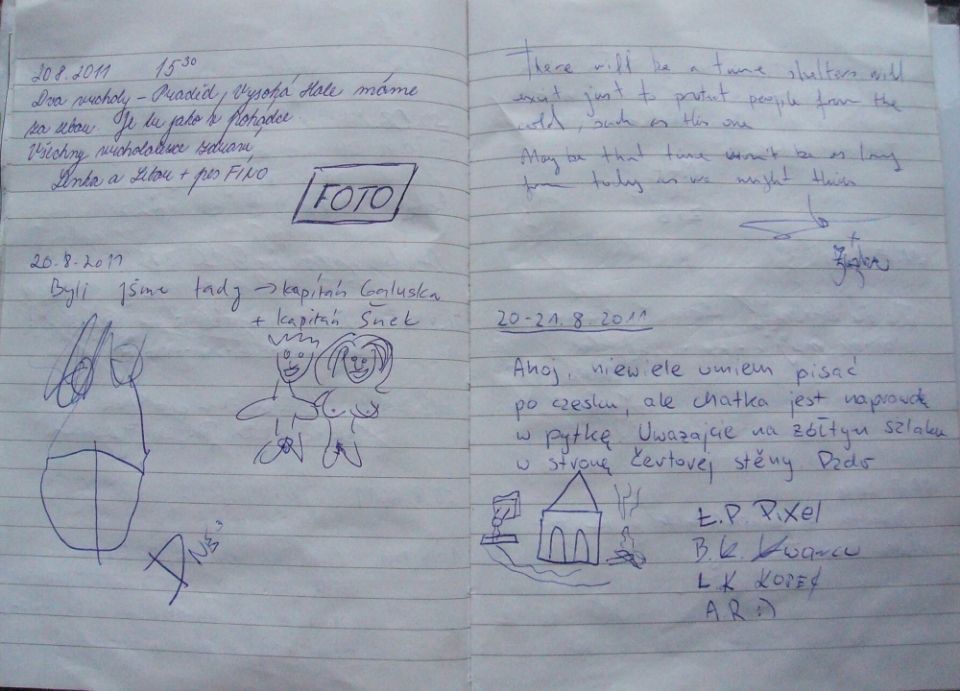 20.8.2011 15³⁰
Dva vrcholy – Praděd, Vysoká Hole máme
za sebou Je tu jako v pohádce
Všechny zdraví
Lenka a + pes FÍNO
FOTO
20.8.2011
Byli jsme tady → kapitán Galuska
+ kapitán Šnek
There will be a time shelters will
exist just to protect people from the
cold, such as this one
May be that time won't be as long
from today as we might think
20-21.8.2011
Ahoj, niewiele umiem pisać
po czesku, ale chatka jest naprawdę
w pytkę. Uważajcie na żółtym szlaku
w stronę Čertovej stěny Pzdr
Ł.P. Pixel
B.K. Kwarcu
Ł K
A R :)